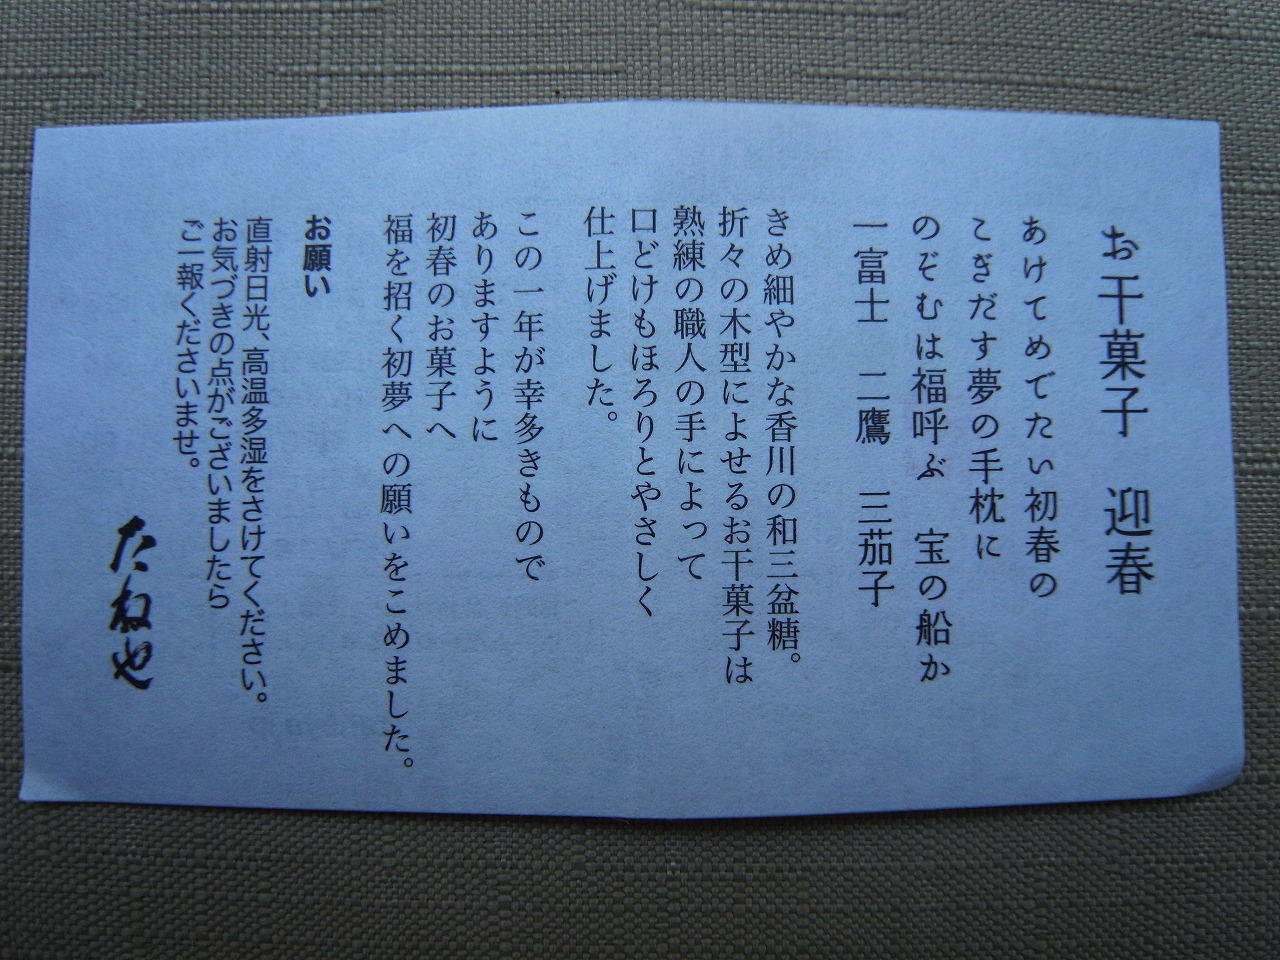 お干菓子　迎春
あけてめでたい初春の
こぎだす夢の手枕に
のぞむは福呼ぶ　宝の船か
一富士　二鷹　三茄子
きめ細やかな香川の和三盆糖。
折々の木型によせるお干菓子は
熟練の職人の手によって
口どけもほろりとやさしく
仕上げました。
この一年が幸多きもので
ありますように
初春のお菓子へ
福を招く初夢への願いをこめました。
お願い
直射日光、高温多湿をさけてください。
お気づきの点がございましたら
ご一報くださいませ。
たねや